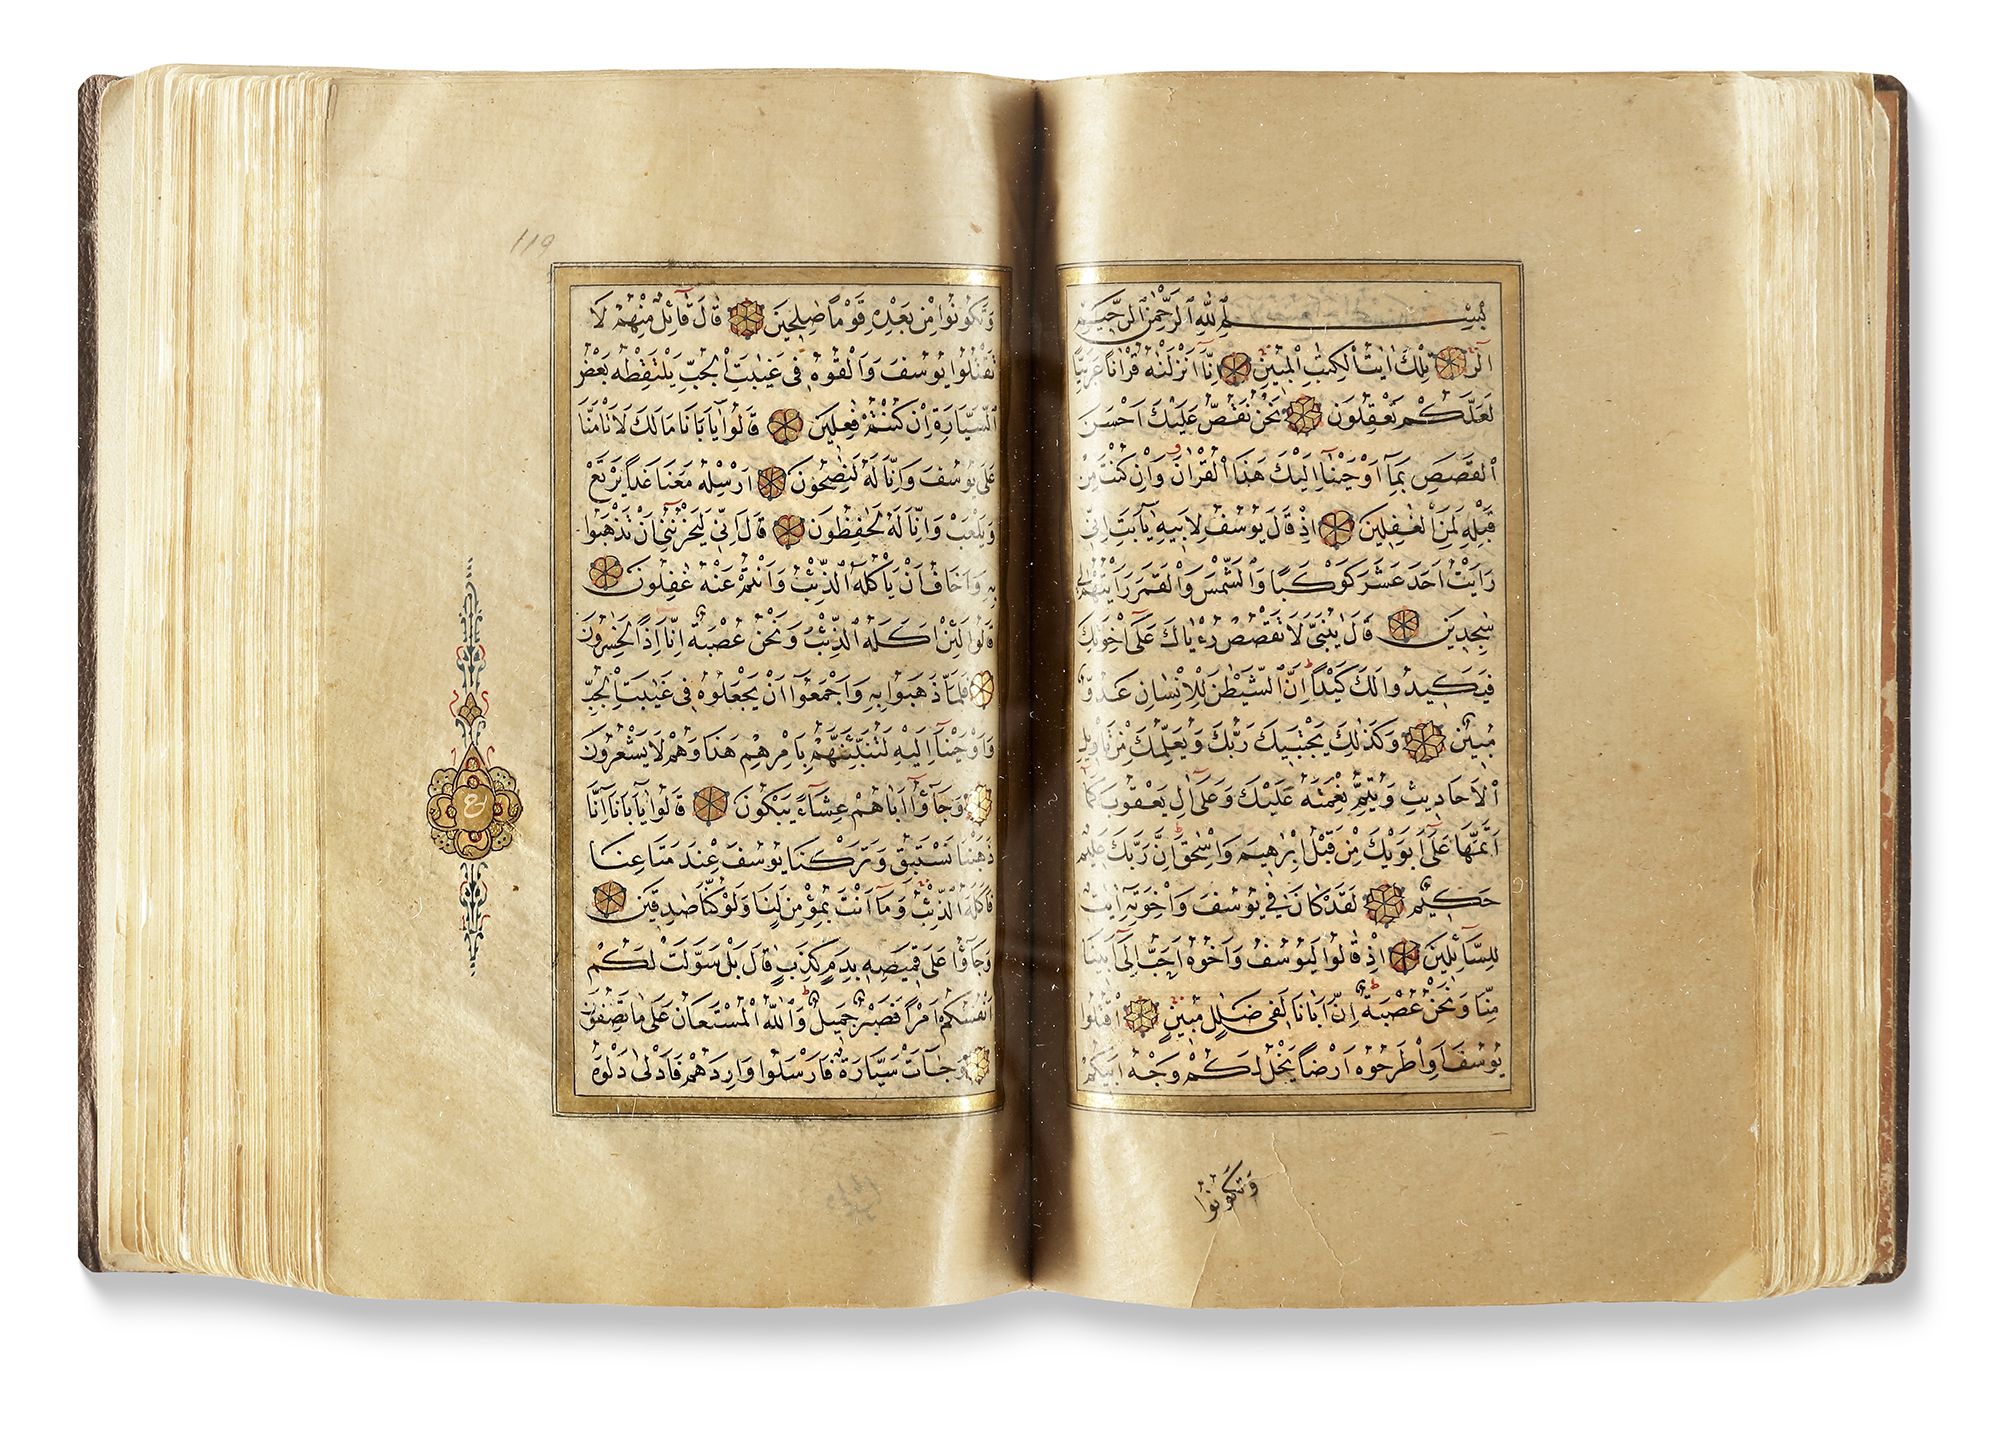 بِسْمِ اللّٰهِ الرَّحْمٰنِ الرَّحِيمِ
الٓرٰ تِلْكَ اٰيَاتُ الْكِتٰبِ الْمُبِينِ اِنَّا اَنْزَلْنٰهُ قُرْاٰنًا عَرَبِيًّا
لَعَلَّكُمْ تَعْقِلُونَ نَحْنُ نَقُصُّ عَلَيْكَ اَحْسَنَ
الْقَصَصِ بِمَٓا اَوْحَيْنَٓا اِلَيْكَ هٰذَا الْقُرْاٰنَ وَاِنْ كُنْتَ مِنْ
قَبْلِهِ لَمِنَ الْغٰفِلِينَ اِذْ قَالَ يُوسُفُ لِاَبِيهِ يَٓا اَبَتِ اِنِّي
رَاَيْتُ اَحَدَ عَشَرَ كَوْكَبًا وَالشَّمْسَ وَالْقَمَرَ رَاَيْتُهُمْ لِي
سٰجِدِينَ قَالَ يٰبُنَيَّ لَا تَقْصُصْ رُءْيَاكَ عَلٰٓى اِخْوَتِكَ
فَيَكِيدُوا لَكَ كَيْدًا اِنَّ الشَّيْطٰنَ لِلْاِنْسَانِ عَدُوٌّ
مُبِينٌ وَكَذٰلِكَ يَجْتَبِيكَ رَبُّكَ وَيُعَلِّمُكَ مِنْ تَاْوِيلِ
الْاَحَادِيثِ وَيُتِمُّ نِعْمَتَهُ عَلَيْكَ وَعَلٰٓى اٰلِ يَعْقُوبَ كَمَٓا
اَتَمَّهَا عَلٰٓى اَبَوَيْكَ مِنْ قَبْلُ اِبْرٰهِيمَ وَاِسْحٰقَ اِنَّ رَبَّكَ عَلِيمٌ
حَكِيمٌ لَقَدْ كَانَ فِي يُوسُفَ وَاِخْوَتِهِٓ اٰيٰتٌ
لِلسَّٓائِلِينَ اِذْ قَالُوا لَيُوسُفُ وَاَخُوهُ اَحَبُّ اِلٰٓى اَبِينَا
مِنَّا وَنَحْنُ عُصْبَةٌ اِنَّ اَبَانَا لَفِي ضَلٰلٍ مُبِينٍ اقْتُلُوا
يُوسُفَ اَوِ اطْرَحُوهُ اَرْضًا يَخْلُ لَكُمْ وَجْهُ اَبِيكُمْ
وَتَكُونُوا
119
وَتَكُونُوا مِنْ بَعْدِهِ قَوْمًا صٰلِحِينَ قَالَ قَٓائِلٌ مِنْهُمْ لَا
تَقْتُلُوا يُوسُفَ وَاَلْقُوهُ فِي غَيٰبَتِ الْجُبِّ يَلْتَقِطْهُ بَعْضُ
السَّيَّارَةِ اِنْ كُنْتُمْ فٰعِلِينَ قَالُوا يَٓا اَبَانَا مَا لَكَ لَا تَاْمَنَّا
عَلٰى يُوسُفَ وَاِنَّا لَهُ لَنٰصِحُونَ اَرْسِلْهُ مَعَنَا غَدًا يَرْتَعْ
وَيَلْعَبْ وَاِنَّا لَهُ لَحٰفِظُونَ قَالَ اِنِّي لَيَحْزُنُنِٓي اَنْ تَذْهَبُوا
بِهِ وَاَخَافُ اَنْ يَاْكُلَهُ الذِّئْبُ وَاَنْتُمْ عَنْهُ غٰفِلُونَ
قَالُوا لَئِنْ اَكَلَهُ الذِّئْبُ وَنَحْنُ عُصْبَةٌ اِنَّٓا اِذًا لَخٰسِرُونَ
فَلَمَّا ذَهَبُوا بِهِ وَاَجْمَعُٓوا اَنْ يَجْعَلُوهُ فِي غَيٰبَتِ الْجُبِّ
وَاَوْحَيْنَٓا اِلَيْهِ لَتُنَبِّئَنَّهُمْ بِاَمْرِهِمْ هٰذَا وَهُمْ لَا يَشْعُرُونَ
وَجَٓاؤُٓا اَبَاهُمْ عِشَٓاءً يَبْكُونَ قَالُوا يَٓا اَبَانَٓا اِنَّا
ذَهَبْنَا نَسْتَبِقُ وَتَرَكْنَا يُوسُفَ عِنْدَ مَتَاعِنَا
فَاَكَلَهُ الذِّئْبُ وَمَٓا اَنْتَ بِمُؤْمِنٍ لَنَا وَلَوْ كُنَّا صٰدِقِينَ
وَجَٓاؤُا عَلٰى قَمِيصِهِ بِدَمٍ كَذِبٍ قَالَ بَلْ سَوَّلَتْ لَكُمْ
اَنْفُسُكُمْ اَمْرًا فَصَبْرٌ جَمِيلٌ وَاللّٰهُ الْمُسْتَعَانُ عَلٰى مَا تَصِفُونَ
وَجَٓاءَتْ سَيَّارَةٌ فَاَرْسَلُوا وَارِدَهُمْ فَاَدْلٰى دَلْوَهُ
ع